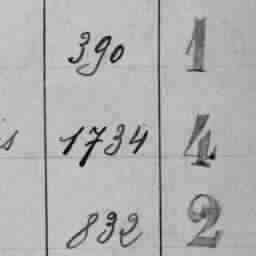 390 1
s 1734 4
832 2